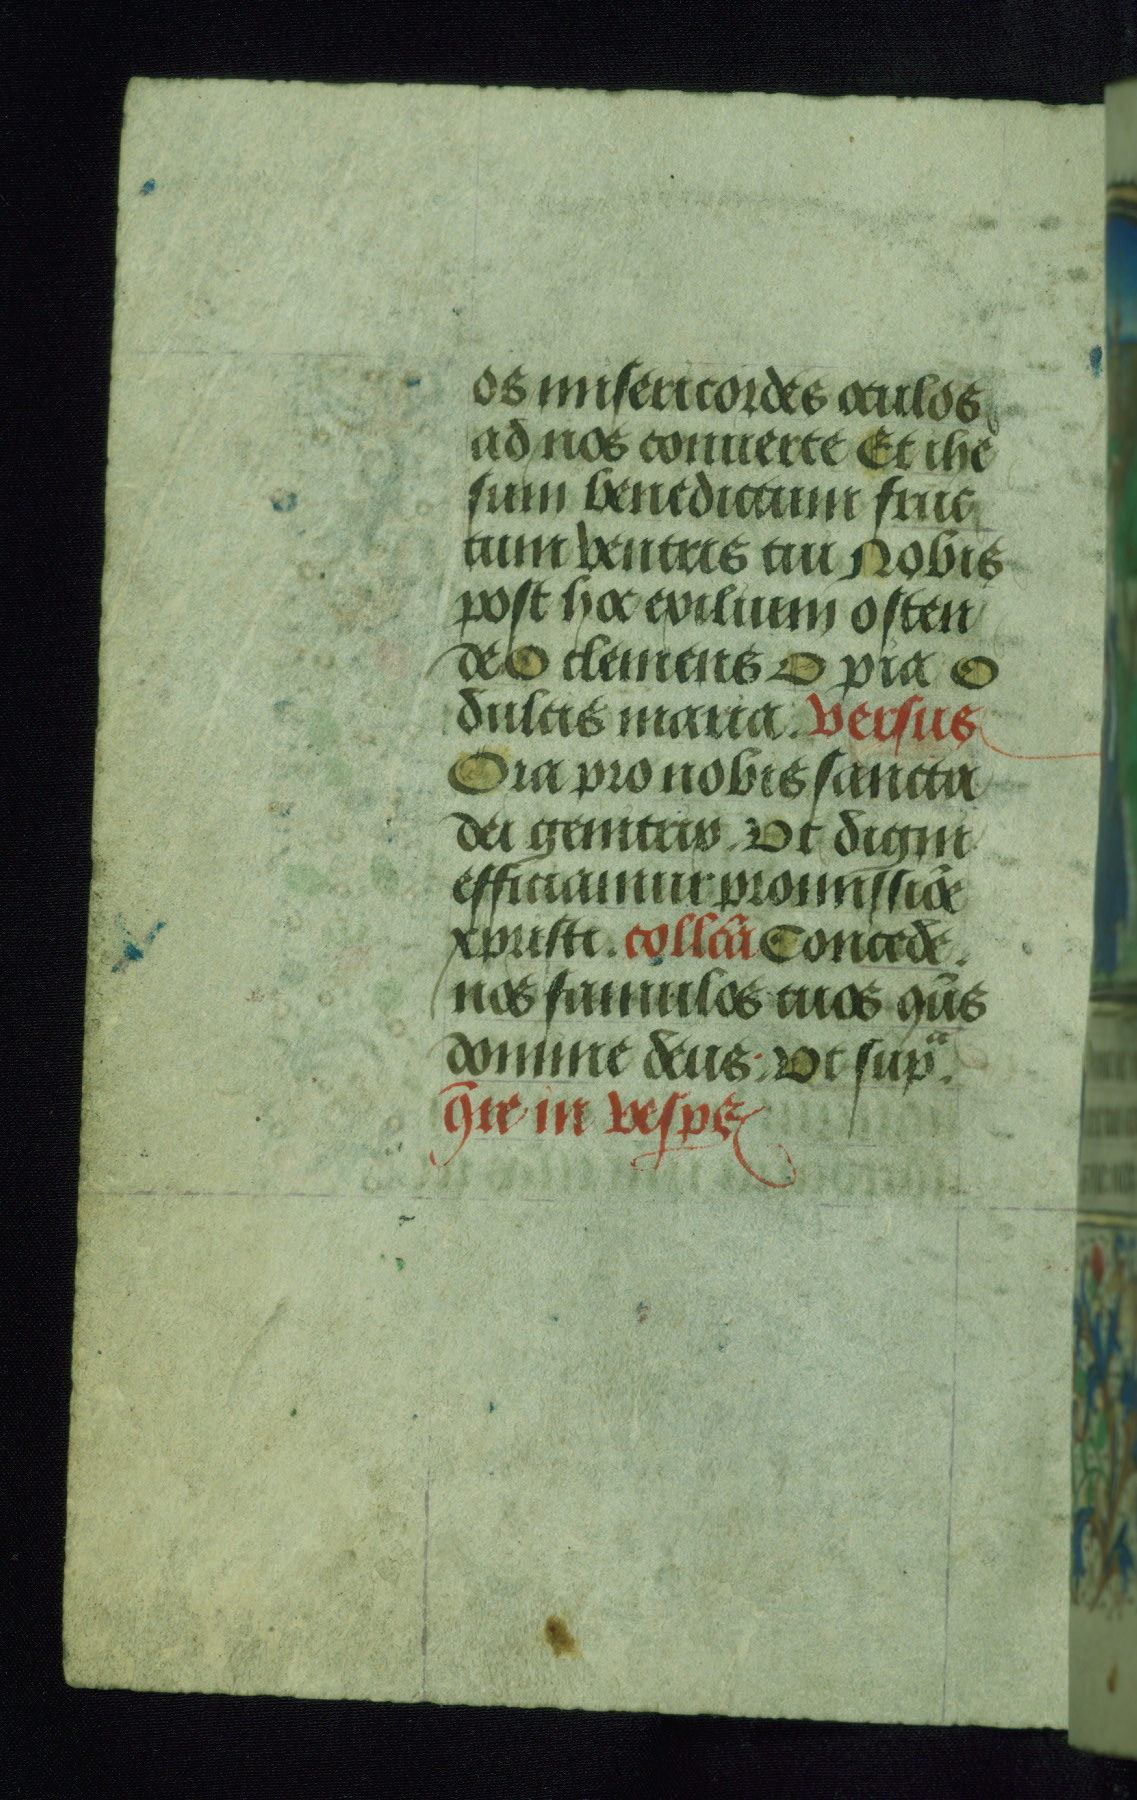 os misericordes oculos
ad nos conuerte Et ihe
sum benedictum fruc
tum ventris tui Nobis
post hoc exilium osten
de O clemens O pia O
dulcis maria. versus
Ora pro nobis sancta
dei genitrix. Vt digni
efficiamur promissiõe
xpristi. collcã Concede.
nos famulos tuos q̃us
domine deus. Vt supᵃ.
in vespe